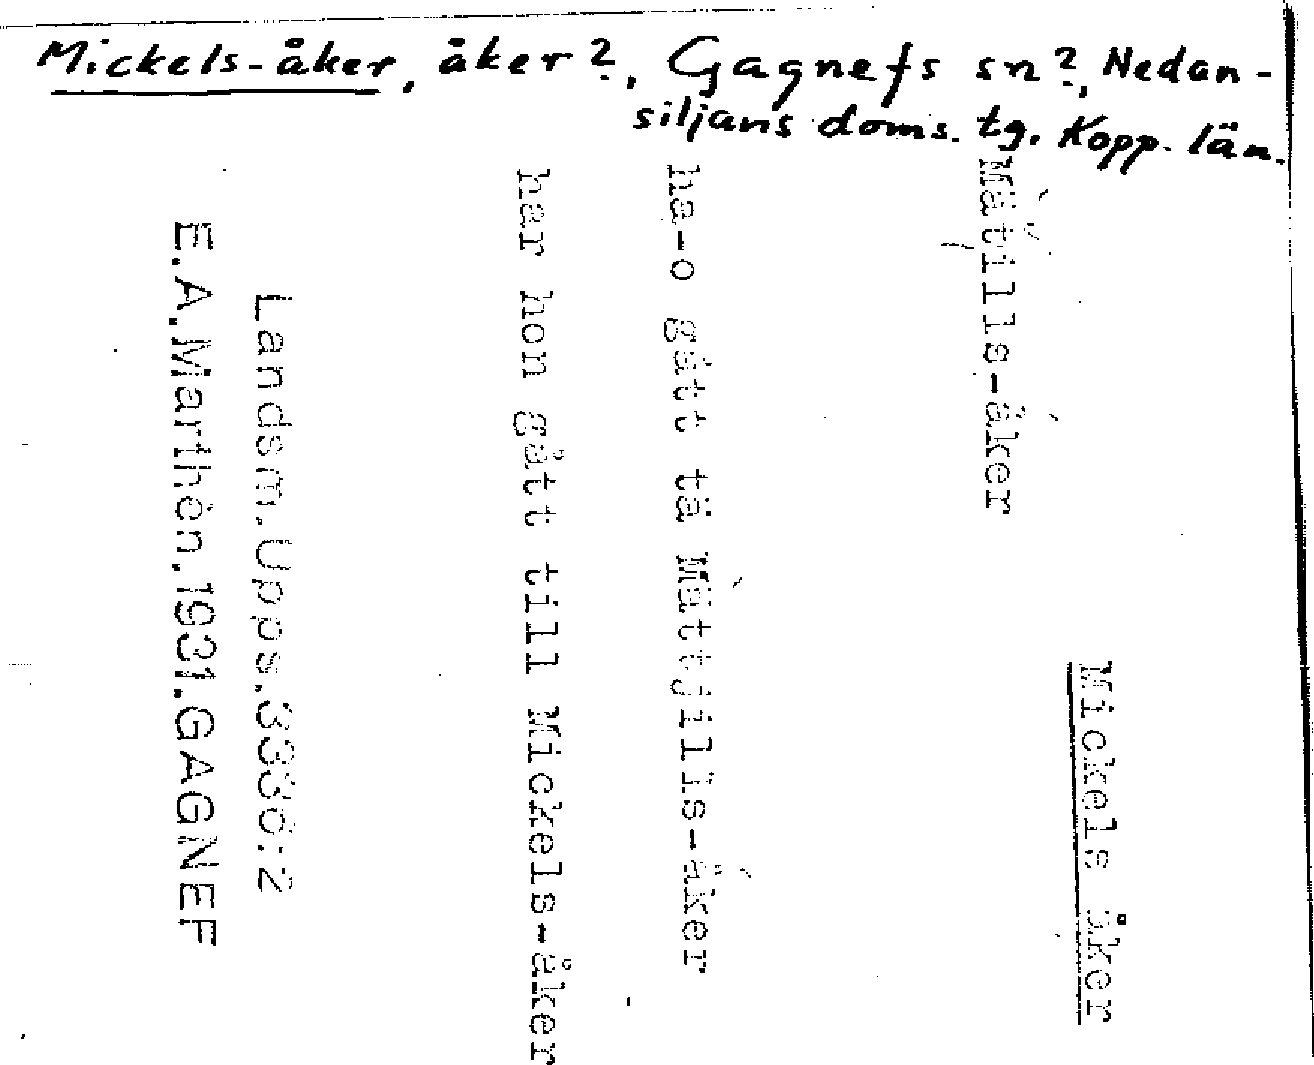 Mickels-åker, åker?, Gagnefs sn?, Nedan-
siljans doms. tg. Kopp. län.
Mickels åker
Mätills-åker
ha-o gått tä Mättjills-åker
har hon gått till Mickels-åker
Landsm. Upps. 3336:2
E.A.Marthén.1931.GAGNEF